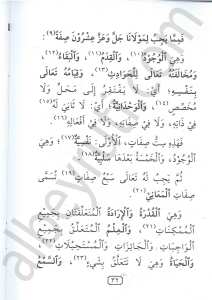 فَمِمَّا يَجِبُ لِمَوْلَانَا جَلَّ وَعَزَّ عِشْرُونَ صِفَةً(٩):
وَهِيَ الْوُجُودُ(١٠)، وَالْقِدَمُ(١١)، وَالْبَقَاءُ(١٢)،
وَمُخَالَفَتُهُ تَعَالَى لِلْحَوَادِثِ(١٣)، وَقِيَامُهُ تَعَالَى
بِنَفْسِهِ: أَيْ: لَا يَفْتَقِرُ إِلَى مَحَلٍّ وَلَا
مُخَصِّصٍ(١٤)، وَالْوَحْدَانِيَّةُ(١٥): أَيْ: لَا ثَانِيَ لَهُ
فِي ذَاتِهِ، وَلَا فِي صِفَاتِهِ، وَلَا فِي أَفْعَالِهِ(١٦).
فَهَذِهِ سِتُّ صِفَاتٍ، الْأُولَى نَفْسِيَّةٌ(١٧) وَهِيَ
الْوُجُودُ، وَالْخَمْسَةُ بَعْدَهَا سَلْبِيَّةٌ(١٨).
ثُمَّ يَجِبُ لَهُ تَعَالَى سَبْعُ صِفَاتٍ تُسَمَّى
صِفَاتِ الْمَعَانِي
وَهِيَ الْقُدْرَةُ وَالْإِرَادَةُ الْمُتَعَلِّقَتَانِ بِجَمِيعِ
الْمُمْكِنَاتِ(٢١)، وَالْعِلْمُ الْمُتَعَلِّقُ بِجَمِيعِ
الْوَاجِبَاتِ وَالْجَائِزَاتِ وَالْمُسْتَحِيلَاتِ(٢٢)،
وَالْحَيَاةُ وَهِيَ لَا تَتَعَلَّقُ بِشَيْءٍ(٢٣)، وَالسَّمْعُ
٣٢
albeyrutii.com